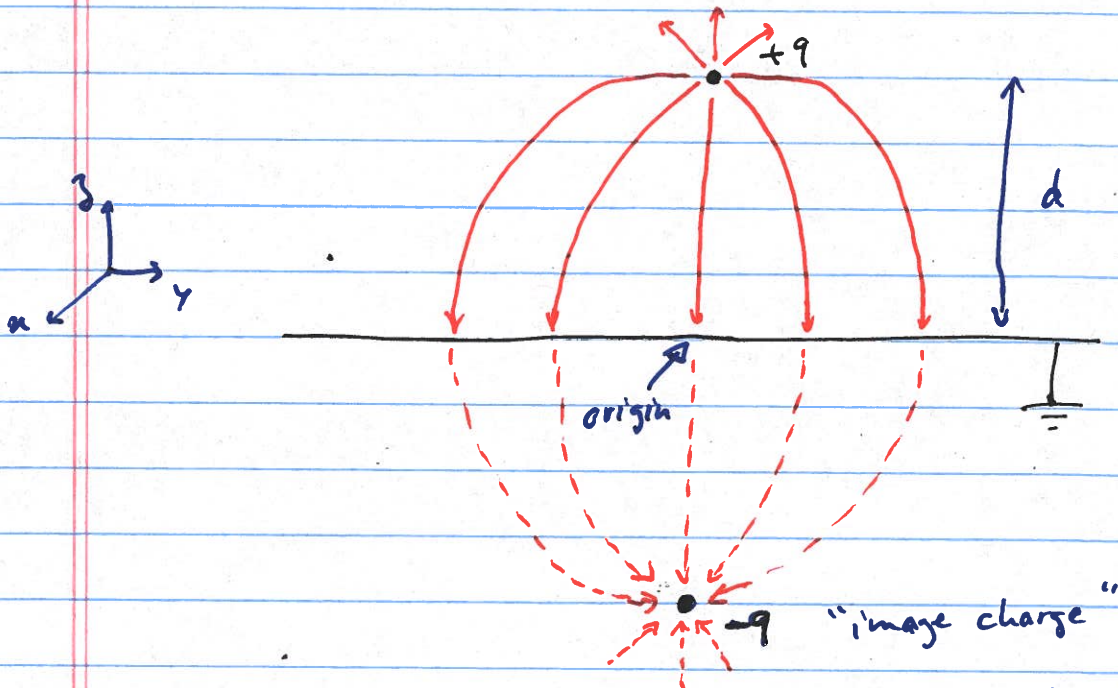 +q
z
d
y
x
origin
-q "image charge"